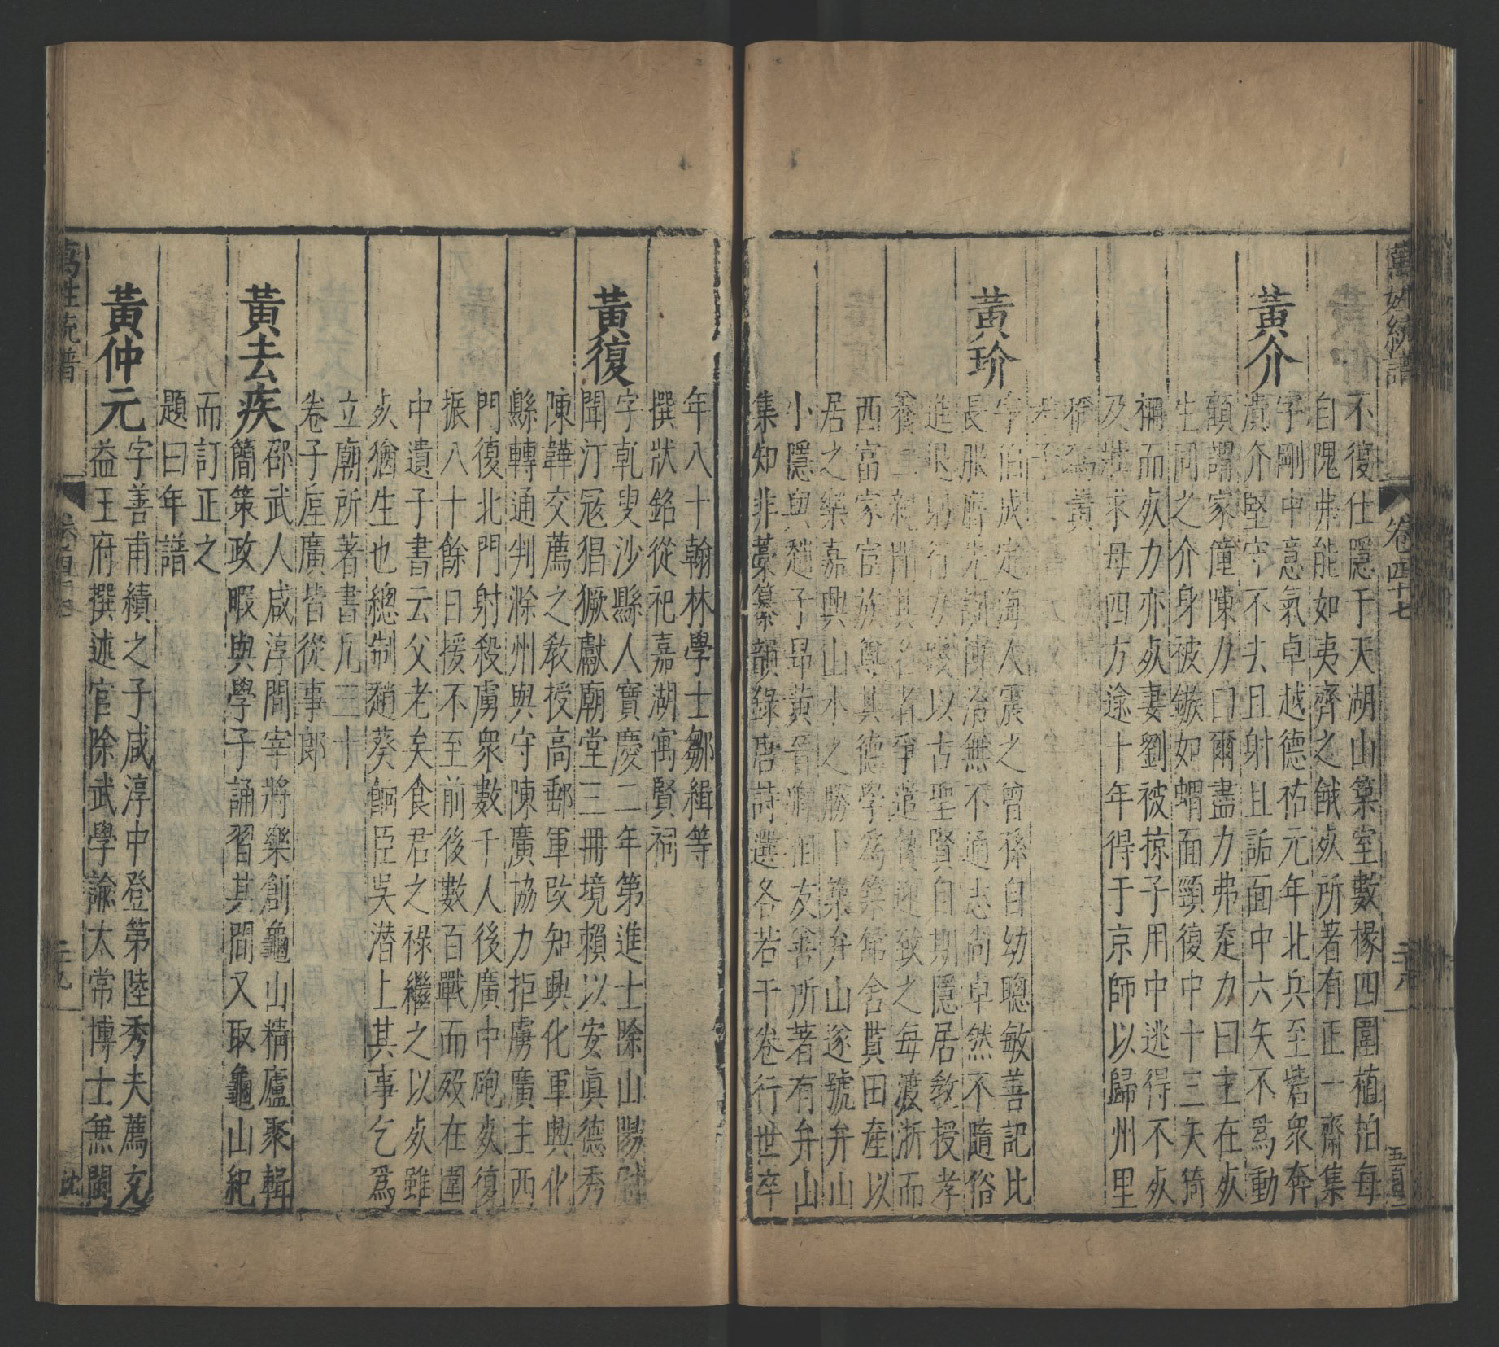 萬姓統譜
卷四十七
不復仕隱于天湖山築室數椽四圍植柏每
自愧弗能如夷齊之餓死所著有正一齋集
黃介
字剛中意氣卓越德祐元年北兵至砦衆奔
潰介堅守不去且射且詬面中六矢不爲動
顧謂家僮陳力曰爾盡力弗走力曰主在死
生同之介身被鏃如蝟面頸復中十三矢猗
禰而死力亦死妻劉被掠子用中逃得不死
及壯求母四方途十年得于京師以歸州里
稱爲黃
孝子
黃玠
字伯成定海人震之曾孫自幼聰敏善記比
長服膺先訓博洽無不通志尚卓然不隨俗
進退幼行力踐以古聖賢自期隱居教授孝
養二親聞其名者爭遣贄迎致之每渡浙而
西富家宦族尊其德學爲築館舍買田產以
居之樂嘉興山水之勝卜築弁山遂號弁山
小隱與趙子昂黃晉卿相友善所著有弁山
集知非藁纂韻錄唐詩選各若干卷行世卒
年八十翰林學士鄒緝等
撰狀銘從祀嘉湖寓賢祠
黃復
字乾叟沙縣人寶慶二年第進士除山陽尉
聞汀冦猖獗獻廟堂三冊境賴以安眞德秀
陳韡交薦之敎授高郵軍改知興化軍興化
縣轉通判滁州與守陳廣協力拒虜廣主西
門復北門射殺虜衆數千人後廣中砲死復
振八十餘日援不至前後數百戰而歿在圍
中遺子書云父老矣食君之祿繼之以死雖
死猶生也總制趙葵餉臣吳潛上其事乞爲
立廟所著書凡三十
卷子庢廣皆從事郎
黃去疾
邵武人咸淳間宰將樂創龜山精廬聚輯
簡策政暇與學子誦習其間又取龜山紀
而訂正之
題曰年譜
黃仲元
字善甫績之子咸淳中登第陸秀夫薦充
益王府撰述官除武學諭太常博士無聞
萬姓統譜